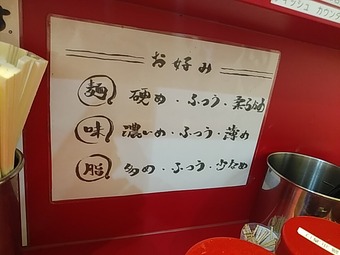 お好み
麺 硬め・ふつう・柔らかめ
味 濃いめ・ふつう・薄め
脂 多め・ふつう・少なめ